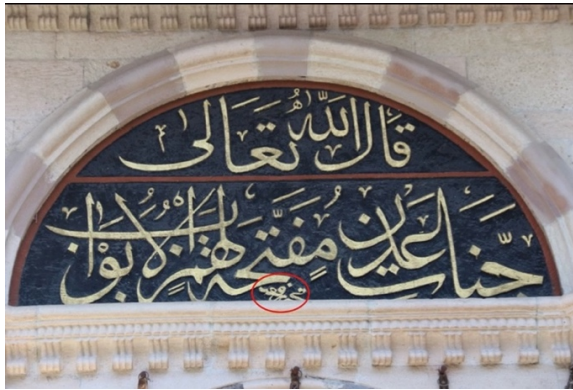 قَالَ اللّٰهُ تَعَالٰى
جَنَّاتِ عَدْنٍ مُفَتَّحَةً لَهُمُ الْاَبْوَابُ